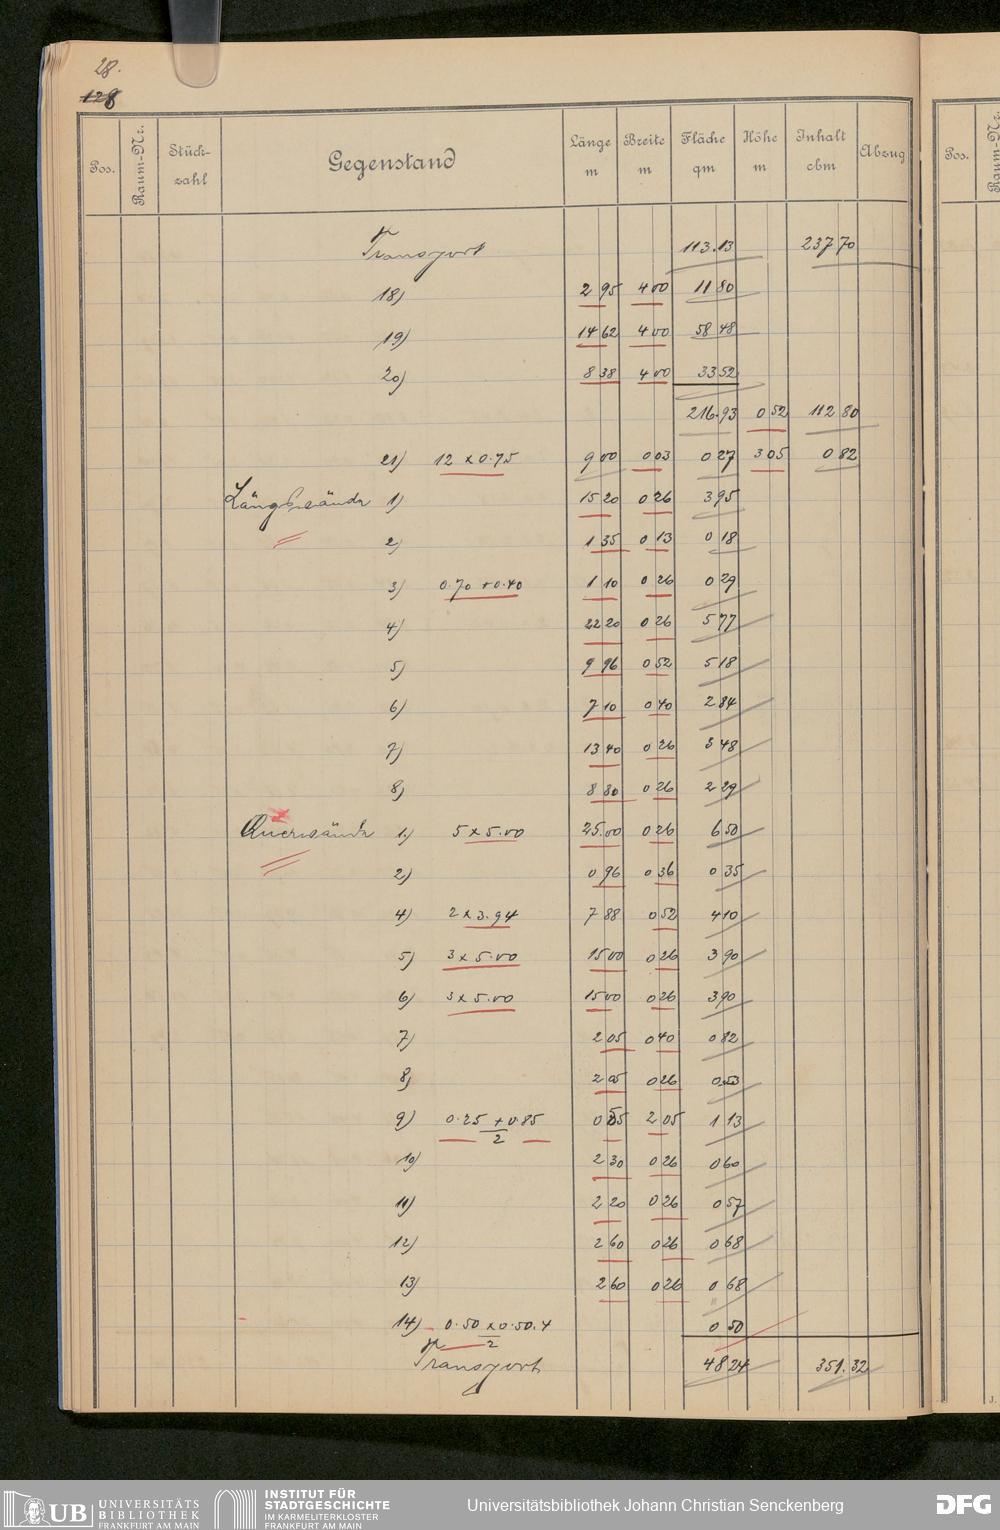 28.
128
Pos. Raum-Nr. Stück-zahl Gegenstand Länge m Breite m Fläche qm Höhe m Inhalt cbm Abzug Pos. Raum-Nr.
Transport 113.13 237 70
18) 2 95 4 00 11 80
19) 14 62 4 00 58 48
20) 8 38 4 00 33 52
216.93 0 52 112 80
21) 12 x 0.75 9 00 0 03 0 27 3 05 0 82
Längswände 1) 15 20 0 26 3 95
2) 1 35 0 13 0 18
3) 0.70 + 0.40 1 10 0 26 0 29
4) 22 20 0 26 5 77
5) 9 96 0 52 5 18
6) 7 10 0 40 2 84
7) 13 40 0 26 3 48
8) 8 80 0 26 2 29
Querwände 1.) 5 x 5.00 25.00 0 26 6 50
2) 0 96 0 36 0 35
4) 2 x 3.94 7 88 0 52 4 10
5) 3 x 5.00 15 00 0 26 3 90
6) 3 x 5.00 15 00 0 26 3 90
7) 2 05 0 40 0 82
8) 2 05 0 26 0.53
9) 0.25 + 0.85 / 2 0 55 2 05 1 13
10) 2 30 0 26 0 60
11) 2 20 0 26 0 57
12) 2 60 0 26 0 68
13) 2 60 0 26 0 68
14) 0.50 x 0.50.4 / 2 0 50
Transport 48 24 351.32
UB UNIVERSITÄTS
BIBLIOTHEK
FRANKFURT AM MAIN
INSTITUT FÜR
STADTGESCHICHTE
IM KARMELITERKLOSTER
FRANKFURT AM MAIN
Universitätsbibliothek Johann Christian Senckenberg
DFG